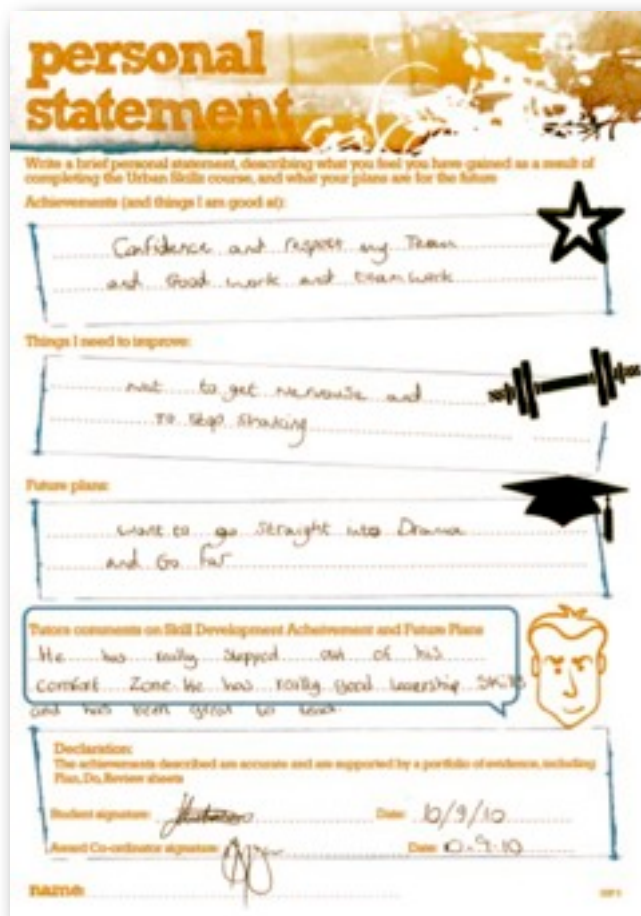 personal
statement
Write a brief personal statement, describing what you feel you have gained as a result of
completing the Urban Skills course, and what your plans are for the future
Achievements (and things I am good at):
Confidence and respect my Team
and Good work and teamwork
Things I need to improve:
not to get nervouse and
To stop shaking
Future plans:
want to go straight into Drama
and Go far
Tutors comments on Skill Development Acheivement and Future Plans
He has really stepped out of his
Comfort Zone. He has really good leadership Skills
and has been great to
Declaration:
The achievements described are accurate and are supported by a portfolio of evidence, including
Plan, Do, Review sheets
Student signature: Date: 10/9/10
Award Co-ordinator signature: Date: 10.9.10
name: